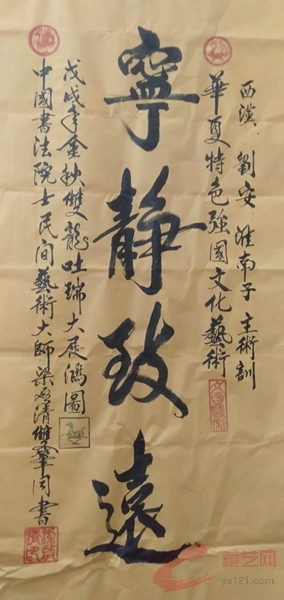 西漢 劉安 淮南子 主術訓
華夏特色強國文化藝術
寧靜致遠
戊戌年金秋雙龍吐瑞大展鴻圖
中國書法院士民间藝術大師梁 清雙筆同書
藏艺网
ys121.com